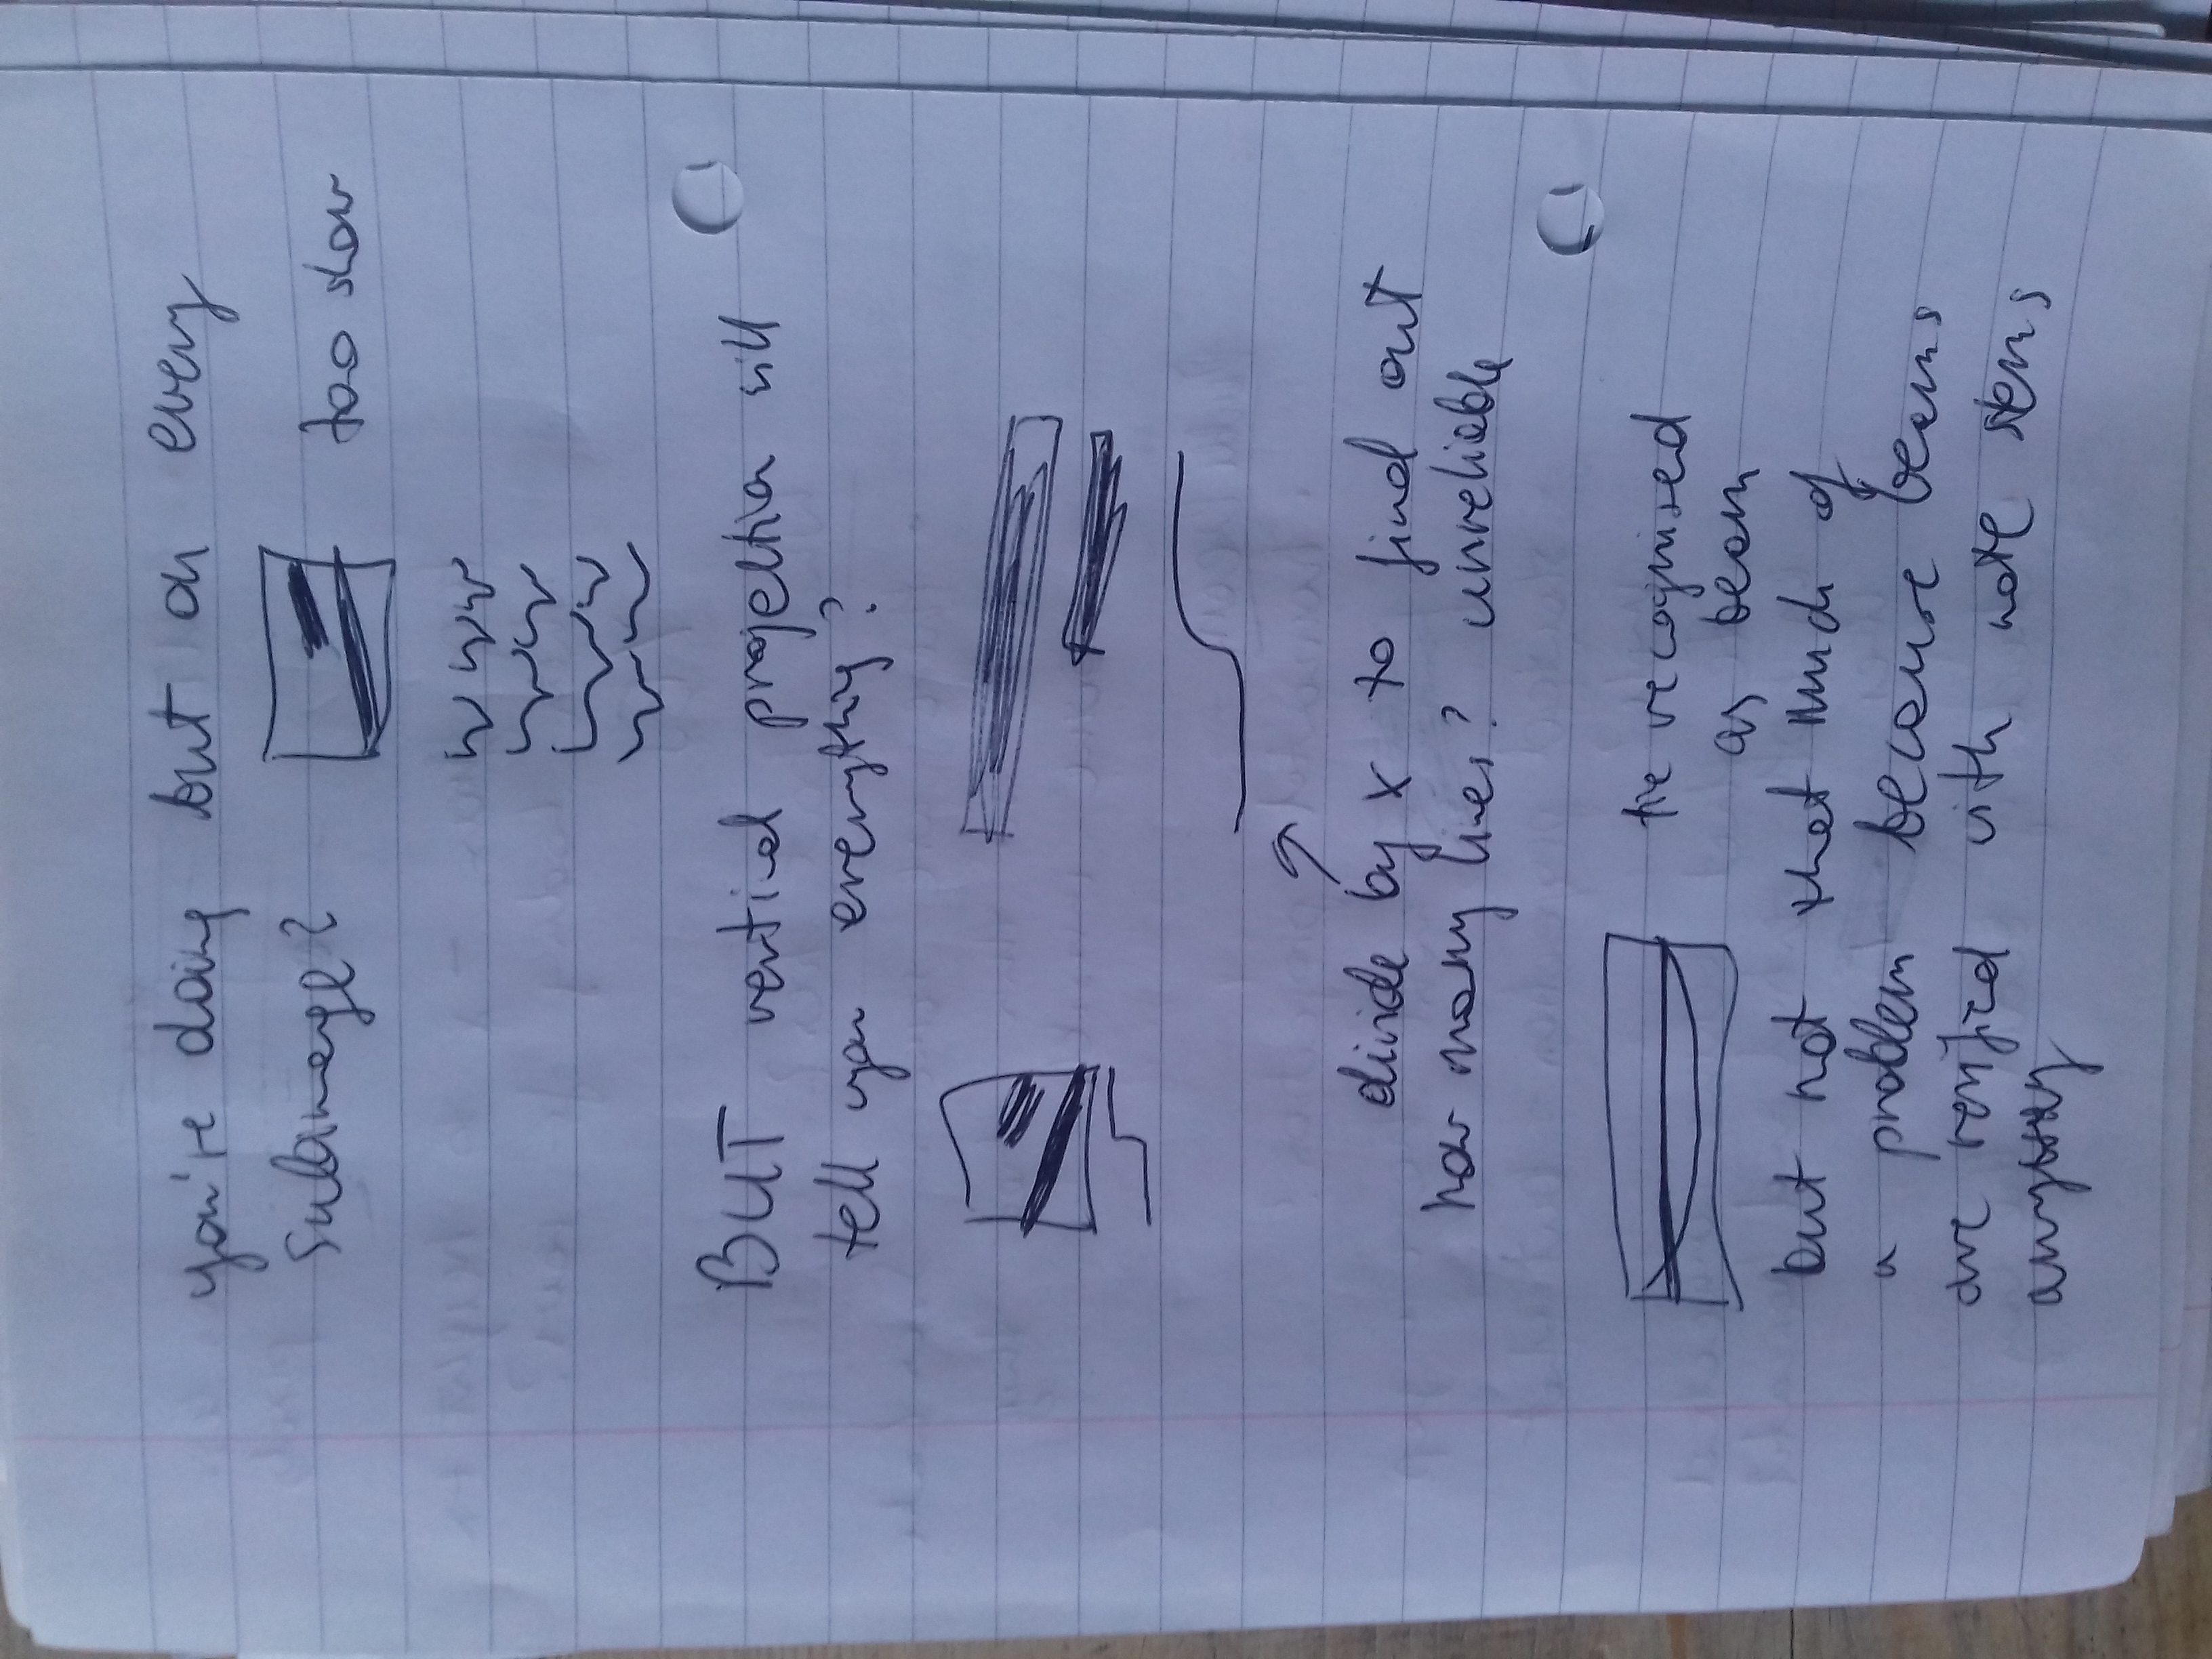 you're doing but on every
subimage?
too slow
BUT vertical projection will
tell you everything?
divide by x to find out
how many lines? unreliable
tie recognised
as beam
but not that much of
a problem because beams
are verified with note stems
anyway